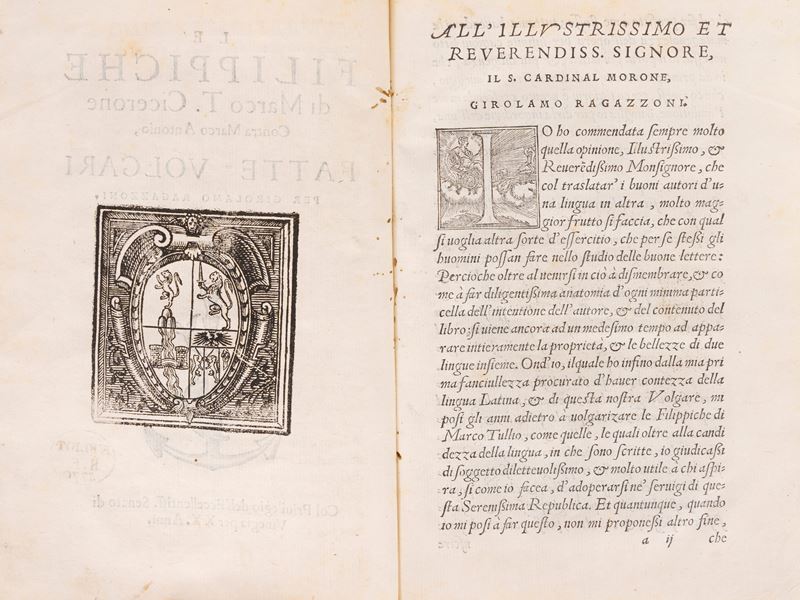 LE
FILIPPICHE
di Marco T. Cicerone
Contra Marco Antonio,
FATTE VOLGARI
PER GIROLAMO RAGAZZONI.
Col Priuilegio dell'Eccellentiss. Senato di
Vinegia per XX. Anni.
ALL' ILLVSTRISSIMO ET
REVERENDISS. SIGNORE,
IL S. CARDINAL MORONE,
GIROLAMO RAGAZZONI.
IO ho commendata sempre molto
quella opinione, Illustrißimo, &
Reuerēdißimo Monsignore, che
col traslatar' i buoni autori d'u-
na lingua in altra, molto mag-
gior frutto si faccia, che con qual
si uoglia altra sorte d'essercitio, che per se steßi gli
huomini possan fare nello studio delle buone lettere:
Percioche oltre al uenirsi in ciò à dismembrare, & co
me à far diligentißima anatomia d'ogni minima parti-
cella dell'intentione dell'autore, & del contenuto del
libro; si uiene ancora ad un medesimo tempo ad appa-
rare intieramente la proprietà, & le bellezze di due
lingue insieme. Ond'io, ilquale ho infino dalla mia pri
ma fanciullezza procurato d'hauer contezza della
lingua Latina, & di questa nostra Volgare, mi
posi gli anni adietro à uolgarizare le Filippiche di
Marco Tullio, come quelle, le quali oltre alla candi
dezza della lingua, in che sono scritte, io giudicaßi
di soggetto diletteuolißimo, & molto utile à chi aspi-
ra, si come io facea, d'adoperarsi ne' seruigi di que-
sta Serenißima Republica. Et quantunque, quando
io mi posi à far questo, non mi proponeßi altro fine,
a ij che